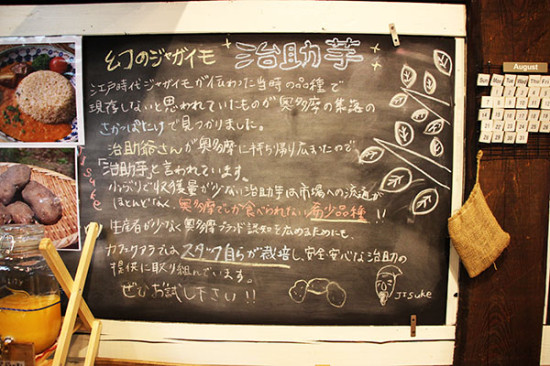 幻のジャガイモ 治助芋
江戸時代ジャガイモが伝わった当時の品種で
現存しないと思われていたものが奥多摩の集落の
さかっぱたけで見つかりました。
治助爺さんが奥多摩に持ち帰り広まったので
「治助芋」と言われています。
小ぶりで収穫量が少ない治助芋は市場への流通が
ほとんどなく 奥多摩でしか食べられない希少品種!!
生産者が少なく奥多摩ブランド認知を広めるためにも、
カフェクアラブでは、スタッフ自らが栽培し、安全安心な治助の
提供に取り組んでいます。
ぜひお試し下さい!!
Jisuke
August